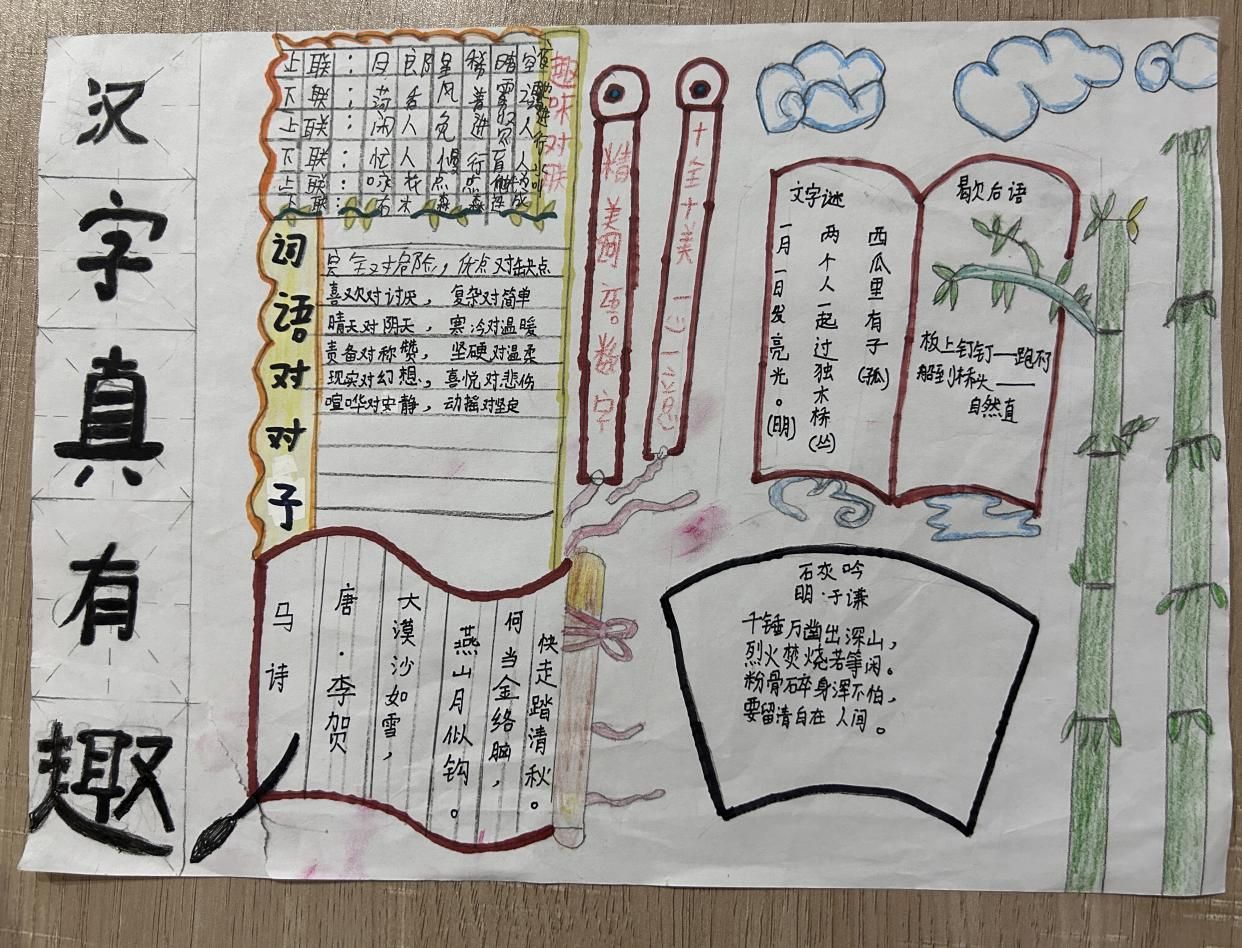 汉字真有趣
趣味对联
上联：月郎星稀
下联：
上联：闲人免进 人进
下联：忙人慢行 人行
上联：
下联：
词语对对子
安全对危险，优点对缺点
喜欢对讨厌，复杂对简单
晴天对阴天，寒冷对温暖
责备对称赞，坚硬对温柔
现实对幻想，喜悦对悲伤
喧哗对安静，动摇对坚定
马诗
唐·李贺
大漠沙如雪，
燕山月似钩。
何当金络脑，
快走踏清秋。
精美词语数字
十全十美
文字谜
西瓜里有子(孤)
两个人一起过独木桥(丛)
一月一日发亮光。(明)
歇后语
板上钉钉——跑不
船到桥头——
自然直
石灰吟
明·于谦
千锤万凿出深山，
烈火焚烧若等闲。
粉骨碎身浑不怕，
要留清白在人间。